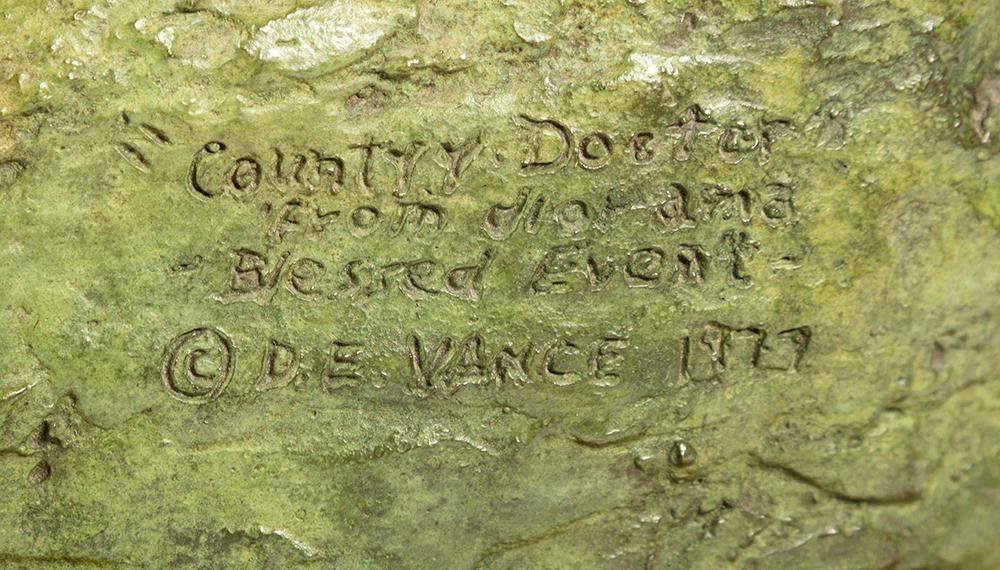 "Countyy Doctor"
from diorama
- Blessed Event -
© D.E. VANCE 1977